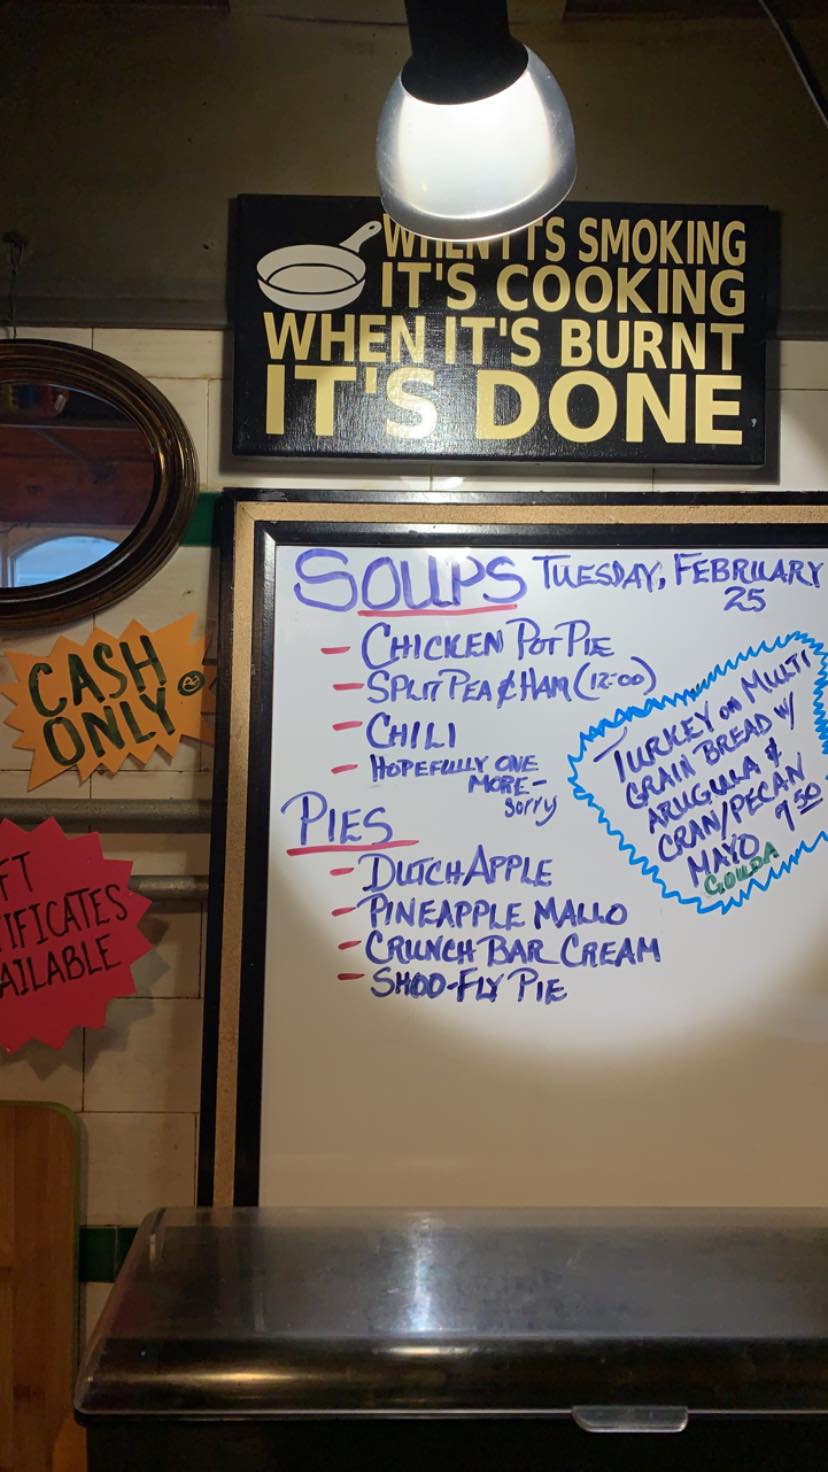 WHEN ITS SMOKING
IT'S COOKING
WHEN IT'S BURNT
IT'S DONE
SOUPS TUESDAY, FEBRUARY
25
- CHICKEN POT PIE
- SPLIT PEA & HAM (12:00)
- CHILI
- HOPEFULLY ONE
MORE -
sorry
TURKEY on MULTI
GRAIN BREAD W/
ARUGULA &
CRAN/PECAN
MAYO 9.50
GOUDA
PIES
- DUTCH APPLE
- PINEAPPLE MALLO
- CRUNCH BAR CREAM
- SHOO-FLY PIE
CASH
ONLY
FT
TIFICATES
AILABLE